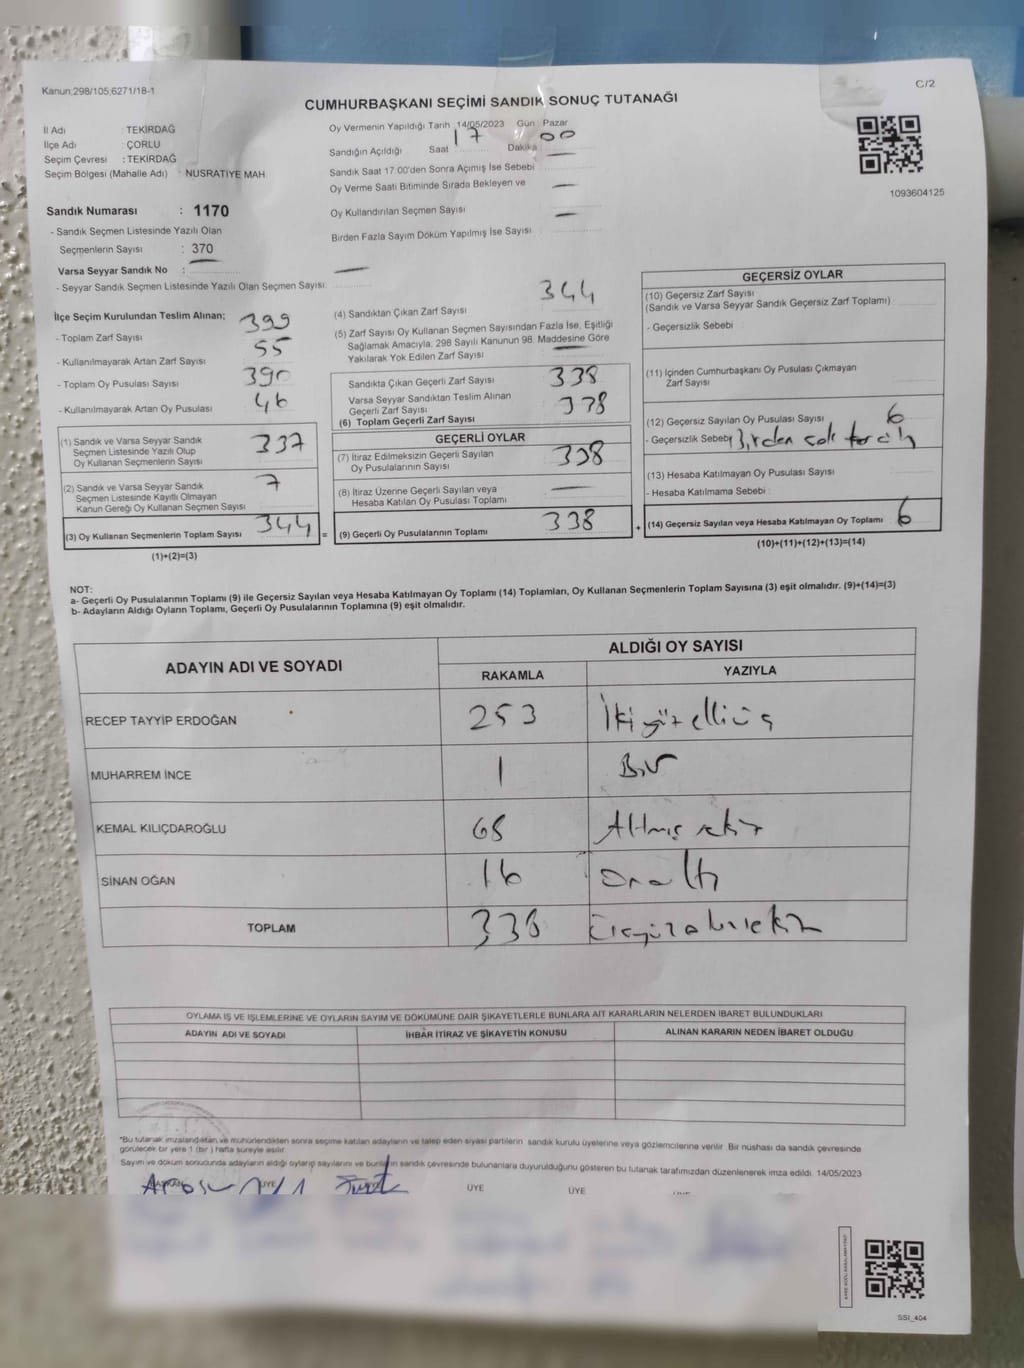 Kanun:298/105;6271/18-1
C/2
CUMHURBAŞKANI SEÇİMİ SANDIK SONUÇ TUTANAĞI
İl Adı : TEKİRDAĞ
İlçe Adı : ÇORLU
Seçim Çevresi : TEKİRDAĞ
Seçim Bölgesi (Mahalle Adı) : NUSRATİYE MAH.
Oy Vermenin Yapıldığı Tarih :14/05/2023 Gün : Pazar
Sandığın Açıldığı Saat 17 Dakika 00
Sandık Saat 17:00'den Sonra Açımış İse Sebebi —
Oy Verme Saati Bitiminde Sırada Bekleyen ve
Oy Kullandırılan Seçmen Sayısı —
Birden Fazla Sayım Döküm Yapılmış İse Sayısı —
1093604125
Sandık Numarası : 1170
- Sandık Seçmen Listesinde Yazılı Olan
Seçmenlerin Sayısı : 370
Varsa Seyyar Sandık No : —
- Seyyar Sandık Seçmen Listesinde Yazılı Olan Seçmen Sayısı: —
İlçe Seçim Kurulundan Teslim Alınan;
- Toplam Zarf Sayısı 399
- Kullanılmayarak Artan Zarf Sayısı 55
- Toplam Oy Pusulası Sayısı 390
- Kullanılmayarak Artan Oy Pusulası 46
(1) Sandık ve Varsa Seyyar Sandık
Seçmen Listesinde Yazılı Olup
Oy Kullanan Seçmenlerin Sayısı 337
(2) Sandık ve Varsa Seyyar Sandık
Seçmen Listesinde Kayıtlı Olmayan
Kanun Gereği Oy Kullanan Seçmen Sayısı 7
(3) Oy Kullanan Seçmenlerin Toplam Sayısı 344 =
(1)+(2)=(3)
(4) Sandıktan Çıkan Zarf Sayısı 344
(5) Zarf Sayısı Oy Kullanan Seçmen Sayısından Fazla İse, Eşitliği
Sağlamak Amacıyla; 298 Sayılı Kanunun 98. Maddesine Göre
Yakılarak Yok Edilen Zarf Sayısı —
Sandıkta Çıkan Geçerli Zarf Sayısı 338
Varsa Seyyar Sandıktan Teslim Alınan
Geçerli Zarf Sayısı
(6) Toplam Geçerli Zarf Sayısı 338
GEÇERLİ OYLAR
(7) İtiraz Edilmeksizin Geçerli Sayılan
Oy Pusulalarının Sayısı 338
(8) İtiraz Üzerine Geçerli Sayılan veya
Hesaba Katılan Oy Pusulası Toplamı —
(9) Geçerli Oy Pusulalarının Toplamı 338 +
GEÇERSİZ OYLAR
(10) Geçersiz Zarf Sayısı
(Sandık ve Varsa Seyyar Sandık Geçersiz Zarf Toplamı)
- Geçersizlik Sebebi
(11) İçinden Cumhurbaşkanı Oy Pusulası Çıkmayan
Zarf Sayısı
(12) Geçersiz Sayılan Oy Pusulası Sayısı 6
- Geçersizlik Sebebi Birden çok tercih
(13) Hesaba Katılmayan Oy Pusulası Sayısı
- Hesaba Katılmama Sebebi
(14) Geçersiz Sayılan veya Hesaba Katılmayan Oy Toplamı 6
(10)+(11)+(12)+(13)=(14)
NOT:
a- Geçerli Oy Pusulalarının Toplamı (9) ile Geçersiz Sayılan veya Hesaba Katılmayan Oy Toplamı (14) Toplamları, Oy Kullanan Seçmenlerin Toplam Sayısına (3) eşit olmalıdır. (9)+(14)=(3)
b- Adayların Aldığı Oyların Toplamı, Geçerli Oy Pusulalarının Toplamına (9) eşit olmalıdır.
ADAYIN ADI VE SOYADI ALDIĞI OY SAYISI
RAKAMLA YAZIYLA
RECEP TAYYİP ERDOĞAN 253 İkiyüzelliüç
MUHARREM İNCE 1 Bir
KEMAL KILIÇDAROĞLU 68 Altmış sekiz
SİNAN OĞAN 16 Onaltı
TOPLAM 338 Üçyüzotuzsekiz
OYLAMA İŞ VE İŞLEMLERİNE VE OYLARIN SAYIM VE DÖKÜMÜNE DAİR ŞİKAYETLERLE BUNLARA AİT KARARLARIN NELERDEN İBARET BULUNDUKLARI
ADAYIN ADI VE SOYADI İHBAR İTİRAZ VE ŞİKAYETİN KONUSU ALINAN KARARIN NEDEN İBARET OLDUĞU
*Bu tutanak imzalandıktan ve mühürlendikten sonra seçime katılan adayların ve talep eden siyasi partilerin sandık kurulu üyelerine veya gözlemcilerine verilir. Bir nüshası da sandık çevresinde
görülecek bir yere 1 (bir) hafta süreyle asılır.
Sayım ve döküm sonucunda adayların aldığı oyların sayılarını ve bunların sandık çevresinde bulunanlara duyurulduğunu gösteren bu tutanak tarafımızdan düzenlenerek imza edildi. 14/05/2023
BAŞKAN ÜYE ÜYE ÜYE ÜYE
SSI_404